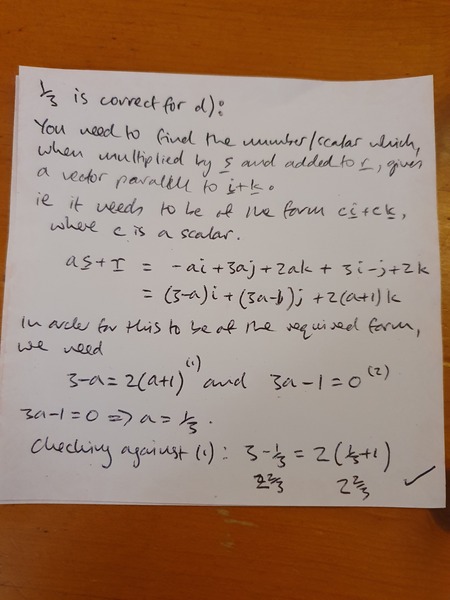 1/3 is correct for d):
You need to find the number/scalar which,
when multiplied by s and added to r, gives
a vector parallel to i+k.
ie it needs to be of the form ci+ck,
where c is a scalar.
as+r = -ai+3aj+2ak + 3i-j+2k
= (3-a)i+(3a-1)j+2(a+1)k
In order for this to be of the required form,
we need
3-a=2(a+1) (1) and 3a-1=0 (2)
3a-1=0 => a=1/3.
Checking against (1): 3-1/3 = 2(1/3+1)
2 2/3 2 2/3 ✓